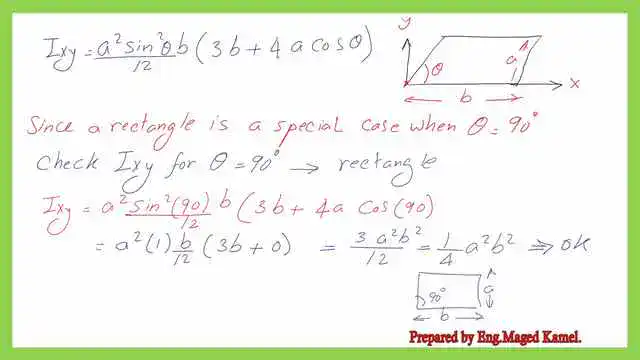 Ixy = a² sin²θ b / 12 ( 3b + 4 a cosθ )
y
a
θ
x
b
Since a rectangle is a special case when θ = 90°
Check Ixy for θ = 90° → rectangle
Ixy = a² sin²(90) b / 12 ( 3b + 4a cos(90)
= a² (1) b / 12 ( 3b + 0 ) = 3 a² b² / 12 = 1 / 4 a² b² ⇒ OK
90°
a
b
Prepared by Eng.Maged Kamel.